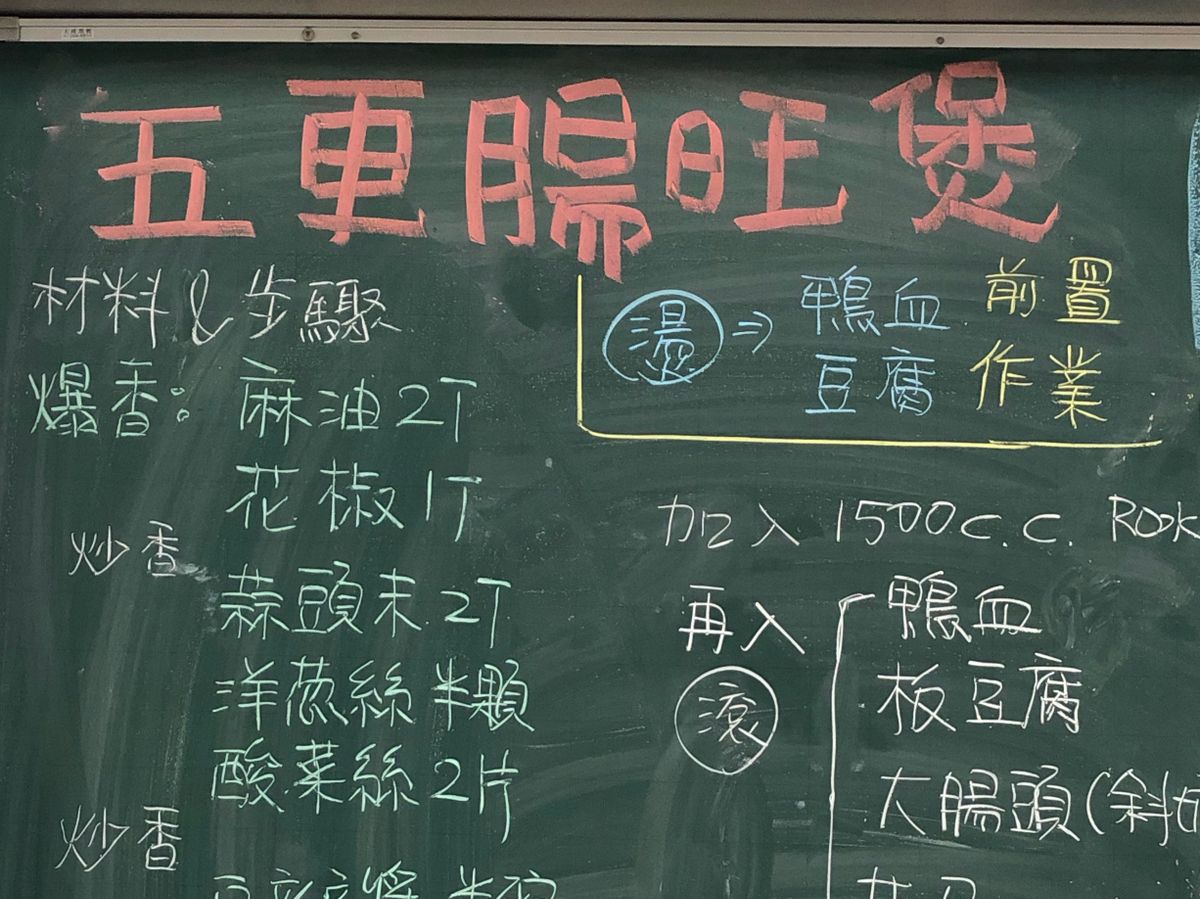 五更腸旺煲
材料&步驟
爆香：麻油2T
花椒1T
炒香
蒜頭末2T
洋蔥絲半顆
酸菜絲2片
炒香
燙⇒鴨血
豆腐
前置
作業
加入1500c.c.
再入
滾
鴨血
板豆腐
大腸頭(斜